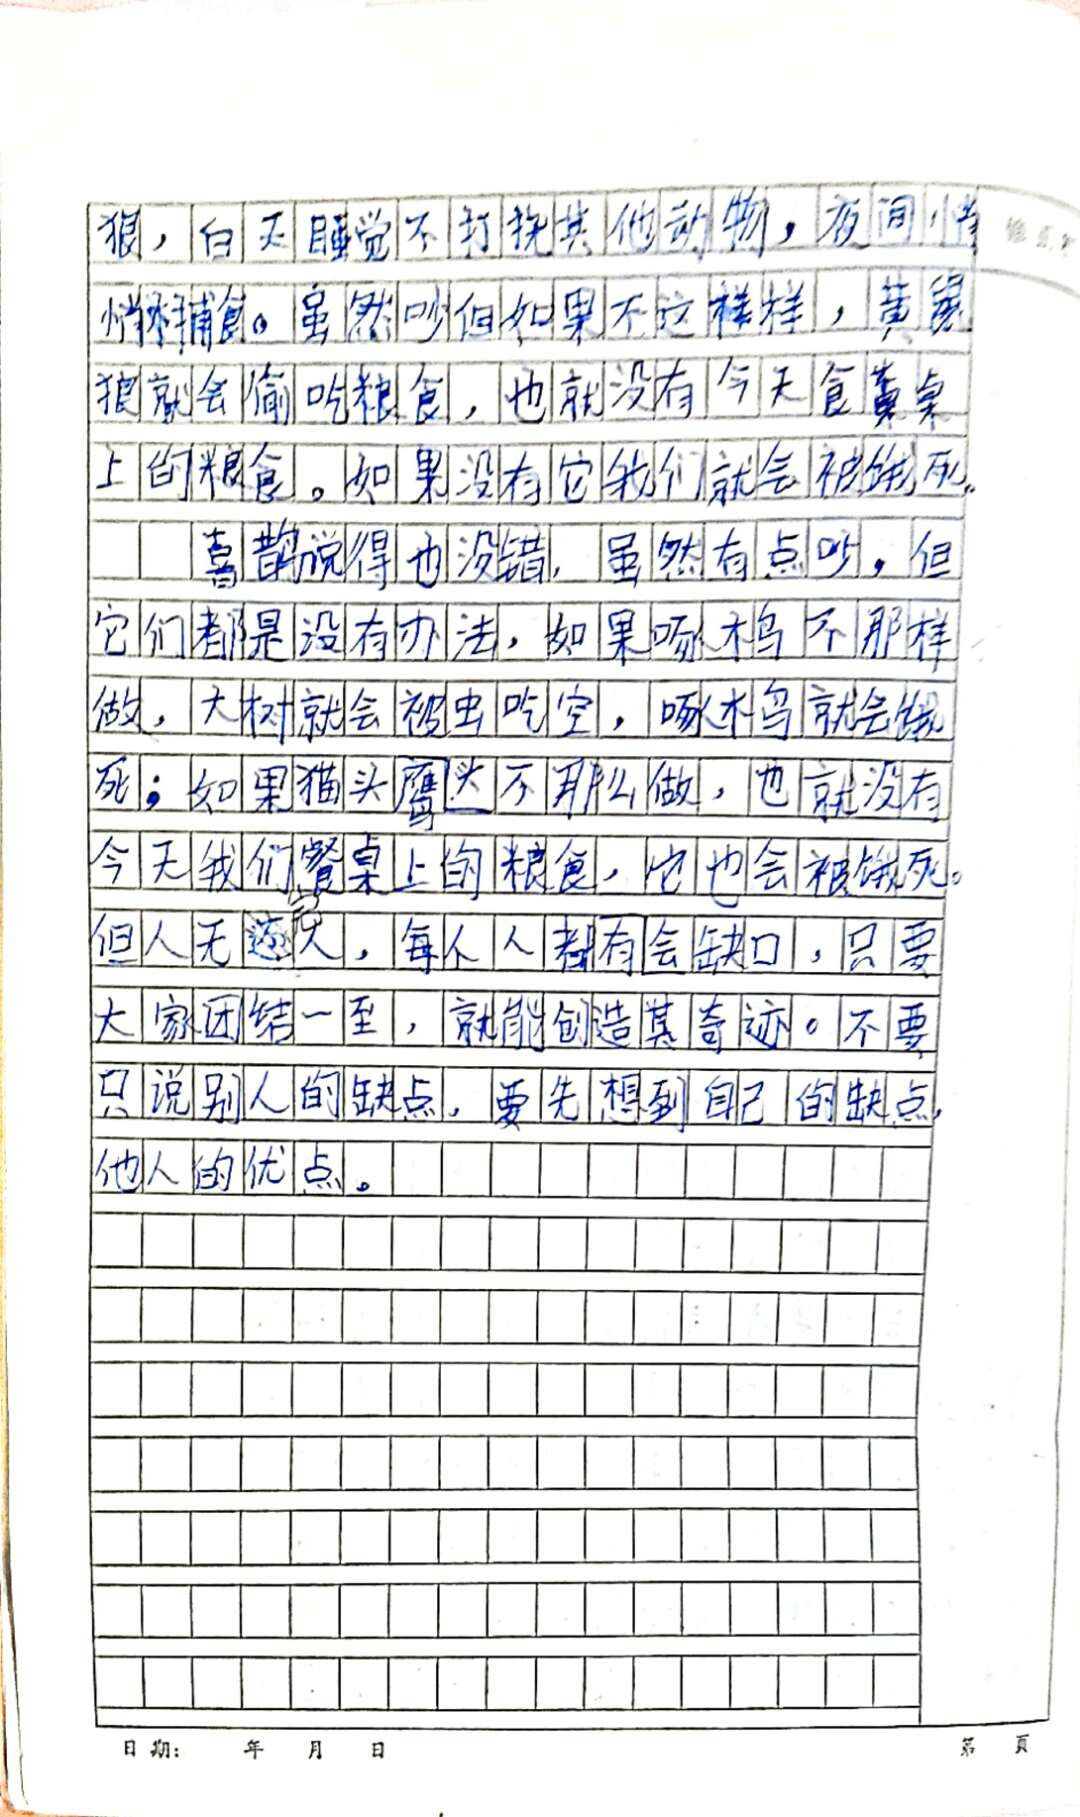 狼，白天睡觉不打扰其他动物，夜间悄
悄捕食。虽然吵但如果不这样样，黄鼠
狼就会偷吃粮食，也就没有今天食桌
上的粮食。如果没有它我们就会被饿死。
喜鹊说得也没错，虽然有点吵，但
它们都是没有办法，如果啄木鸟不那样
做，大树就会被虫吃空，啄木鸟就会饿
死；如果猫头鹰头不那么做，也就没有
今天我们餐桌上的粮食，它也会被饿死。
但人无完人，每个人都有会缺口，只要
大家团结一至，就能创造其奇迹。不要
只说别人的缺点，要先想到自己的缺点，
他人的优点。
日期： 年 月 日
第 頁